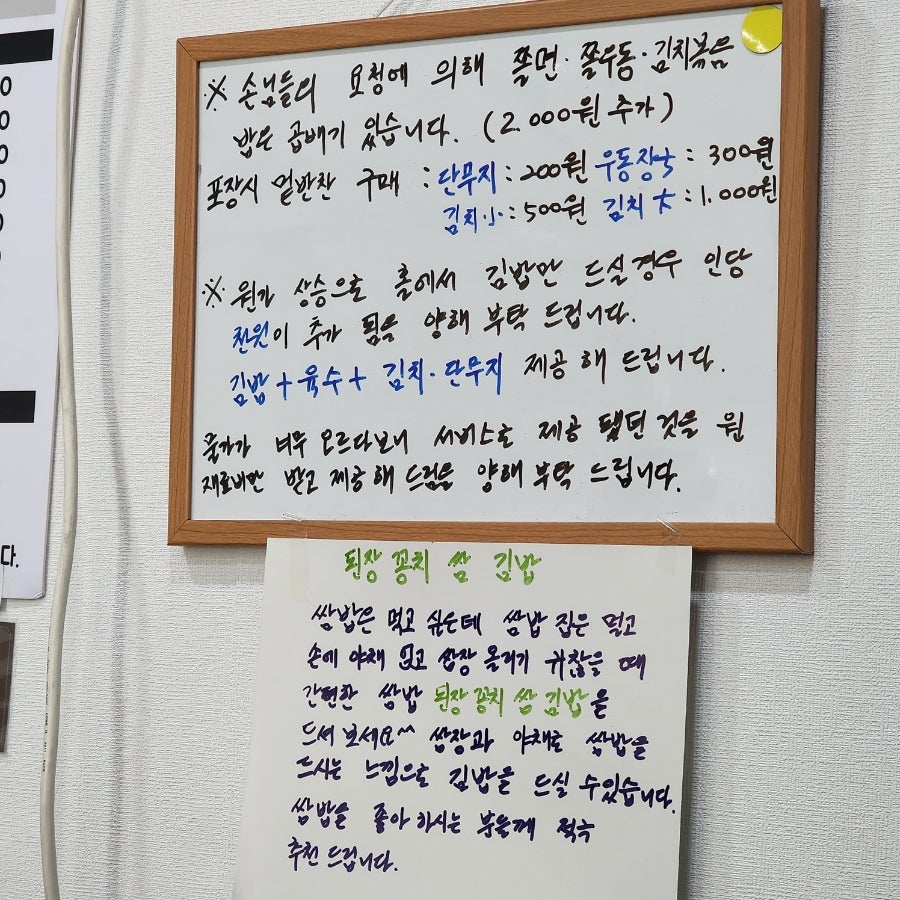 ※ 손님들의 요청에 의해 쫄면·쫄우동·김치볶음
밥은 곱배기 있습니다. (2.000원 추가)
포장시 밑반찬 구매 : 단무지 : 200원 우동장국 : 300원
김치小 : 500원 김치 大 : 1.000원
※ 원가 상승으로 홀에서 김밥만 드실경우 인당
천원이 추가 됨을 양해 부탁 드립니다.
김밥 + 육수 + 김치·단무지 제공 해 드립니다.
물가가 너무 오르다보니 서비스로 제공 됐던 것을 원
재료비만 받고 제공해 드림을 양해 부탁 드립니다.
된장 꽁치 쌈 김밥
쌈밥은 먹고 싶은데 쌈밥 집은 멀고
손에 야채 얹고 쌈장 올리기 귀찮을 때
간편한 쌈밥 된장 꽁치 쌈 김밥을
드셔 보세요^^ 쌈장과 야채로 쌈밥을
드시는 느낌으로 김밥을 드실 수있습니다.
쌈밥을 좋아 하시는 분들께 적극
추천 드립니다.
다.